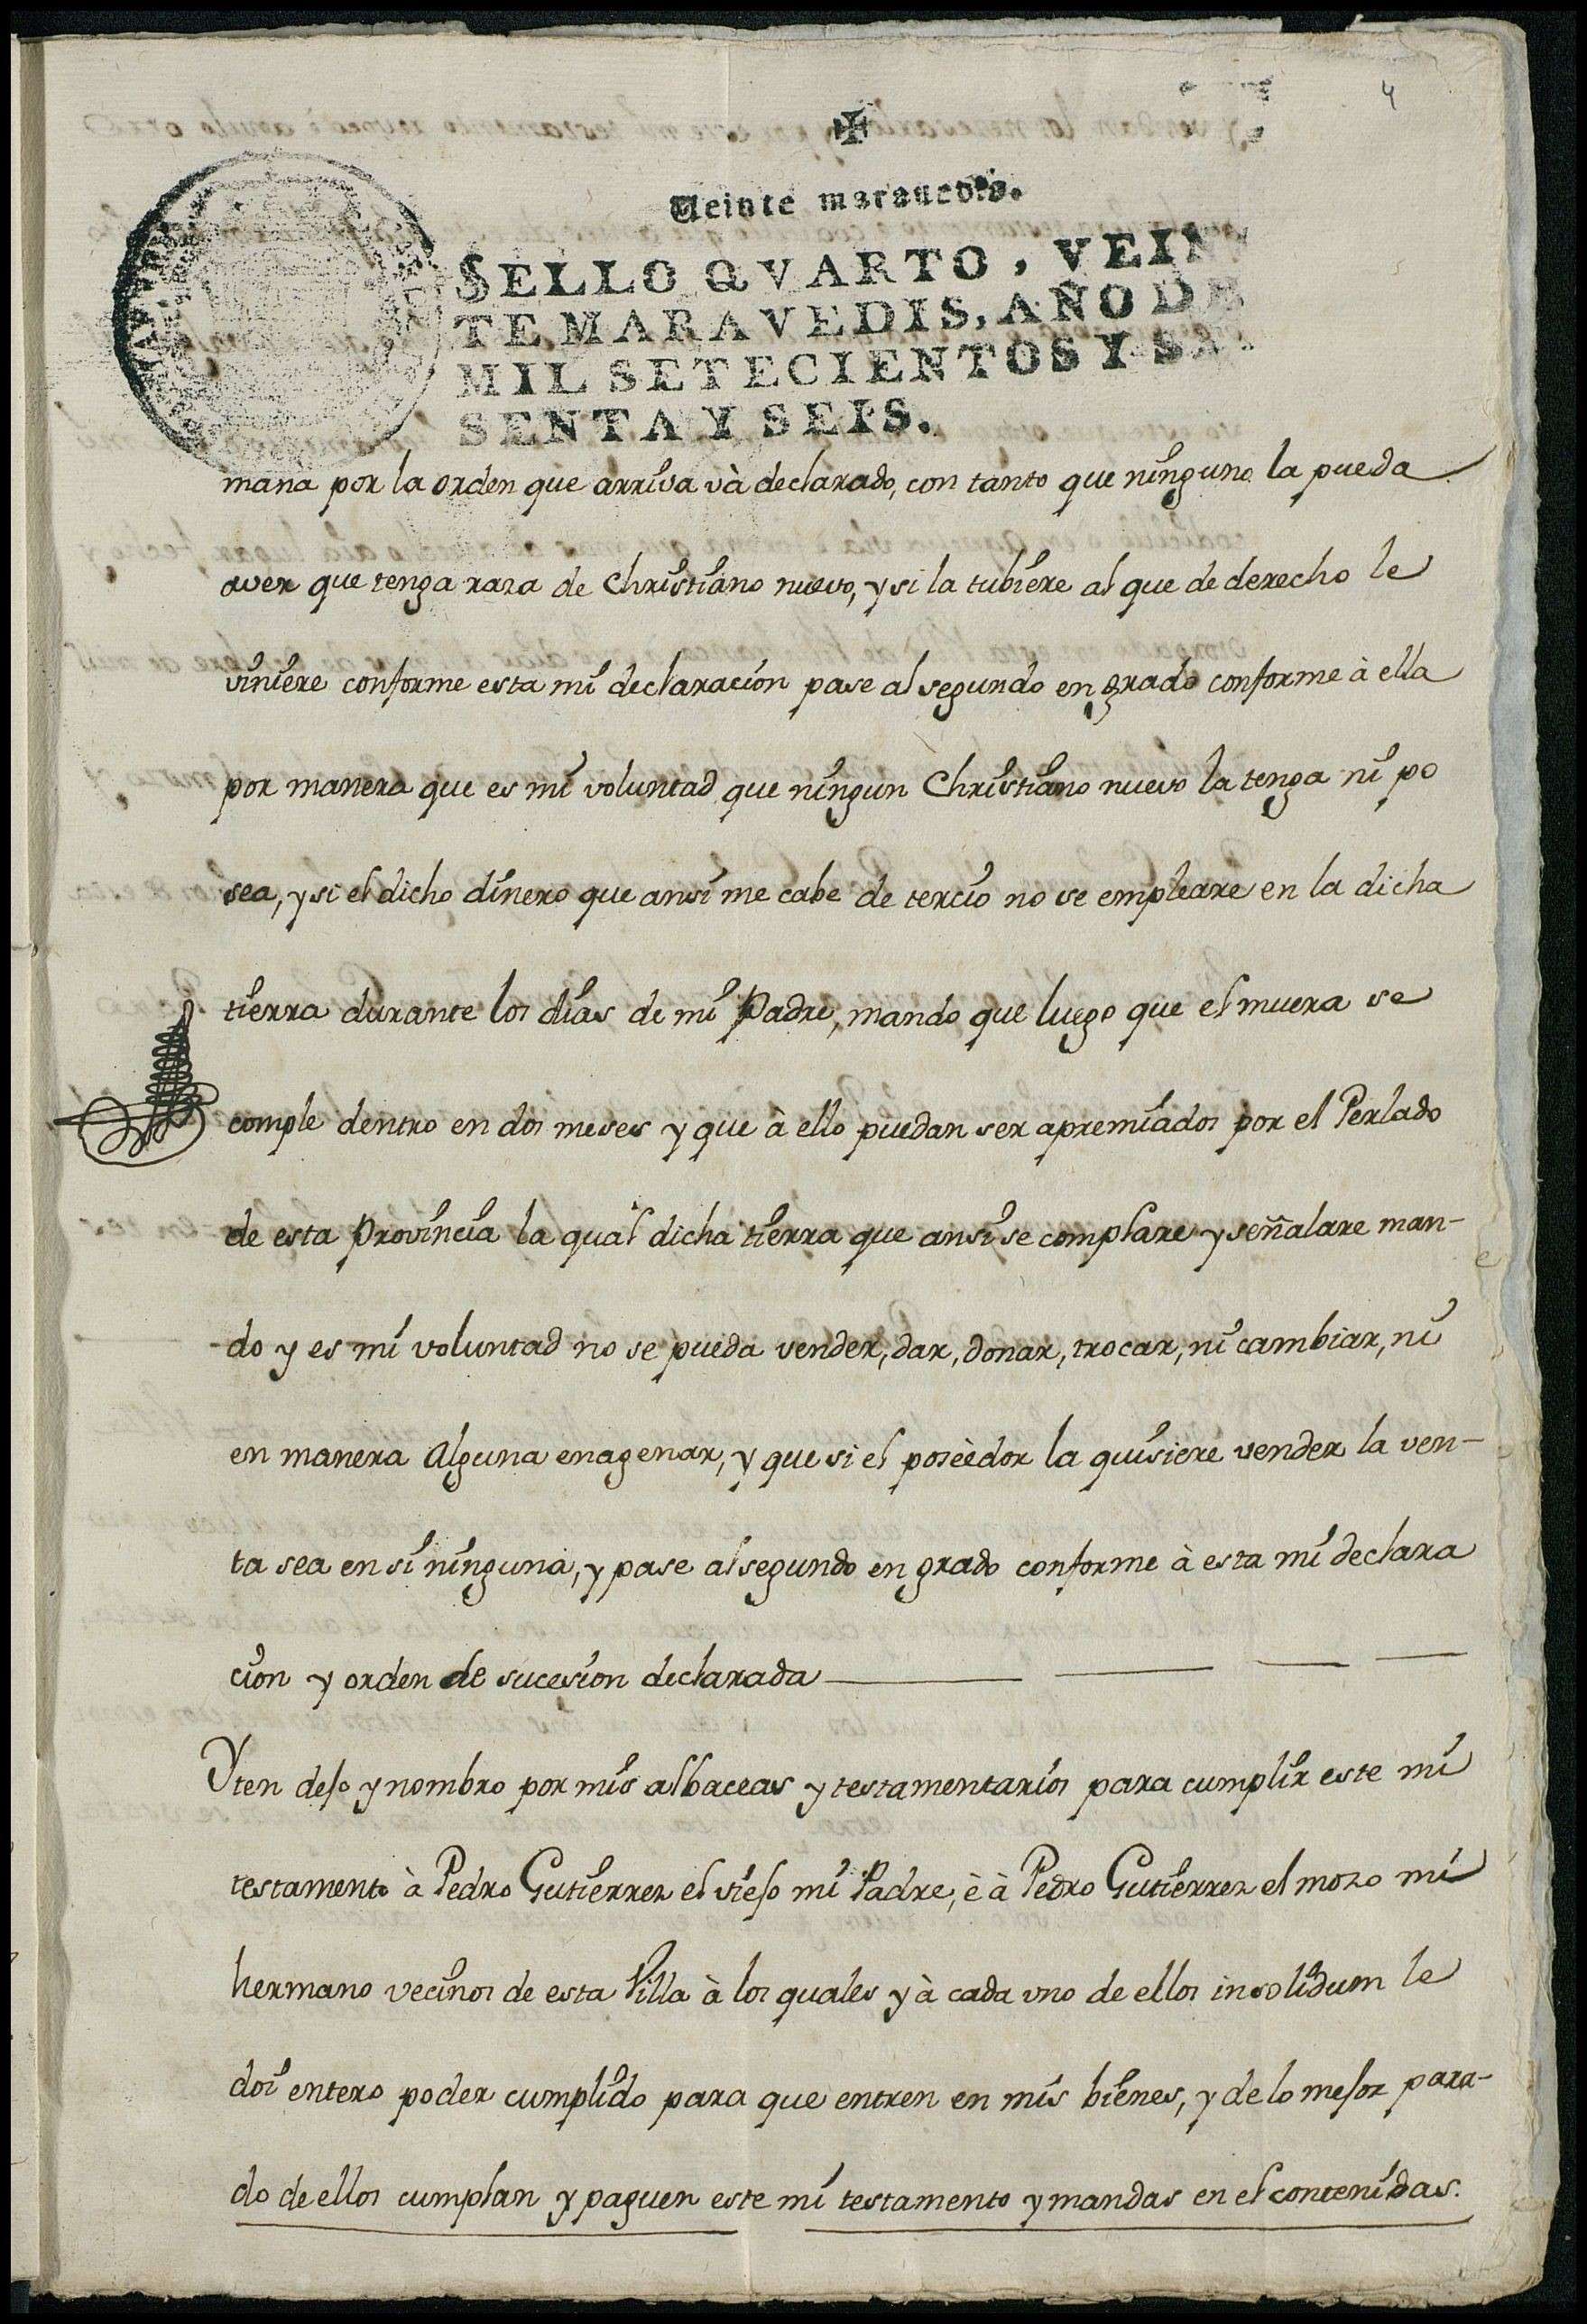 4
Veinte maravedis.
SELLO QVARTO, VEIN
TE MARAVEDIS, AÑO DE
MIL SETECIENTOS Y SE
SENTA Y SEIS.
mana por la orden que arriva và declarado, con tanto que ninguno la pueda
aver que tenga raza de Christiano nuevo, y si la tubiere al que de derecho le
viniere conforme esta mi declaracion pase al segundo en grado conforme à ella
por manera que es mi voluntad que ningun Christiano nuevo la tenga ni po
sea, y si el dicho dinero que ansi me cabe de tercio no se empleare en la dicha
tierra durante los dias de mi Padre, mando que luego que el muera se
comple dentro en dos meses y que à ello puedan ser apremiados por el Perlado
de esta Provincia la qual dicha tierra que ansi se complare y señalare man-
do y es mi voluntad no se pueda vender, dar, donar, trocar, ni cambiar, ni
en manera alguna enagenar, y que si el poseèdor la quisiere vender la ven-
ta sea en si ninguna, y pase al segundo en grado conforme à esta mi declara
cion y orden de sucesion declarada
Yten dejo y nombro por mis albaceas y testamentarios para cumplir este mi
testamento à Pedro Gutierrez el viejo mi Padre, è à Pedro Gutierrez el mozo mi
hermano vecinos de esta Villa à los quales y à cada uno de ellos insolidum le
doi entero poder cumplido para que entren en mis bienes, y de lo mejor para-
do de ellos cumplan y paguen este mi testamento y mandas en el contenidas.